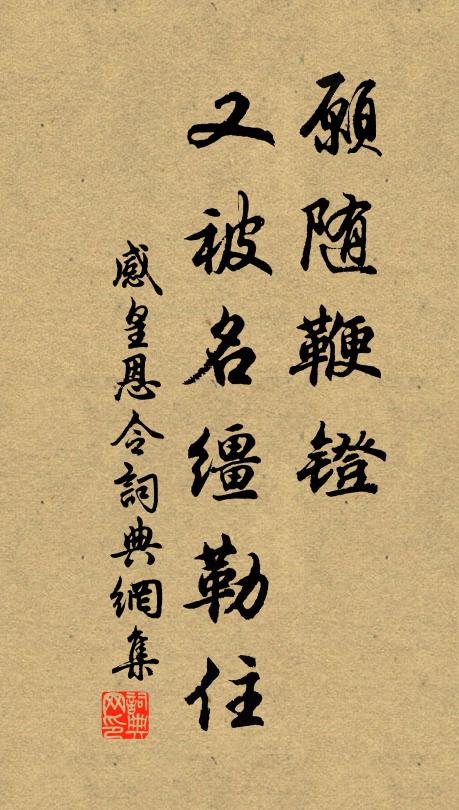 願随鞭鐙
又被名缰勒住
感皇恩令詞典網集
詞典
网印